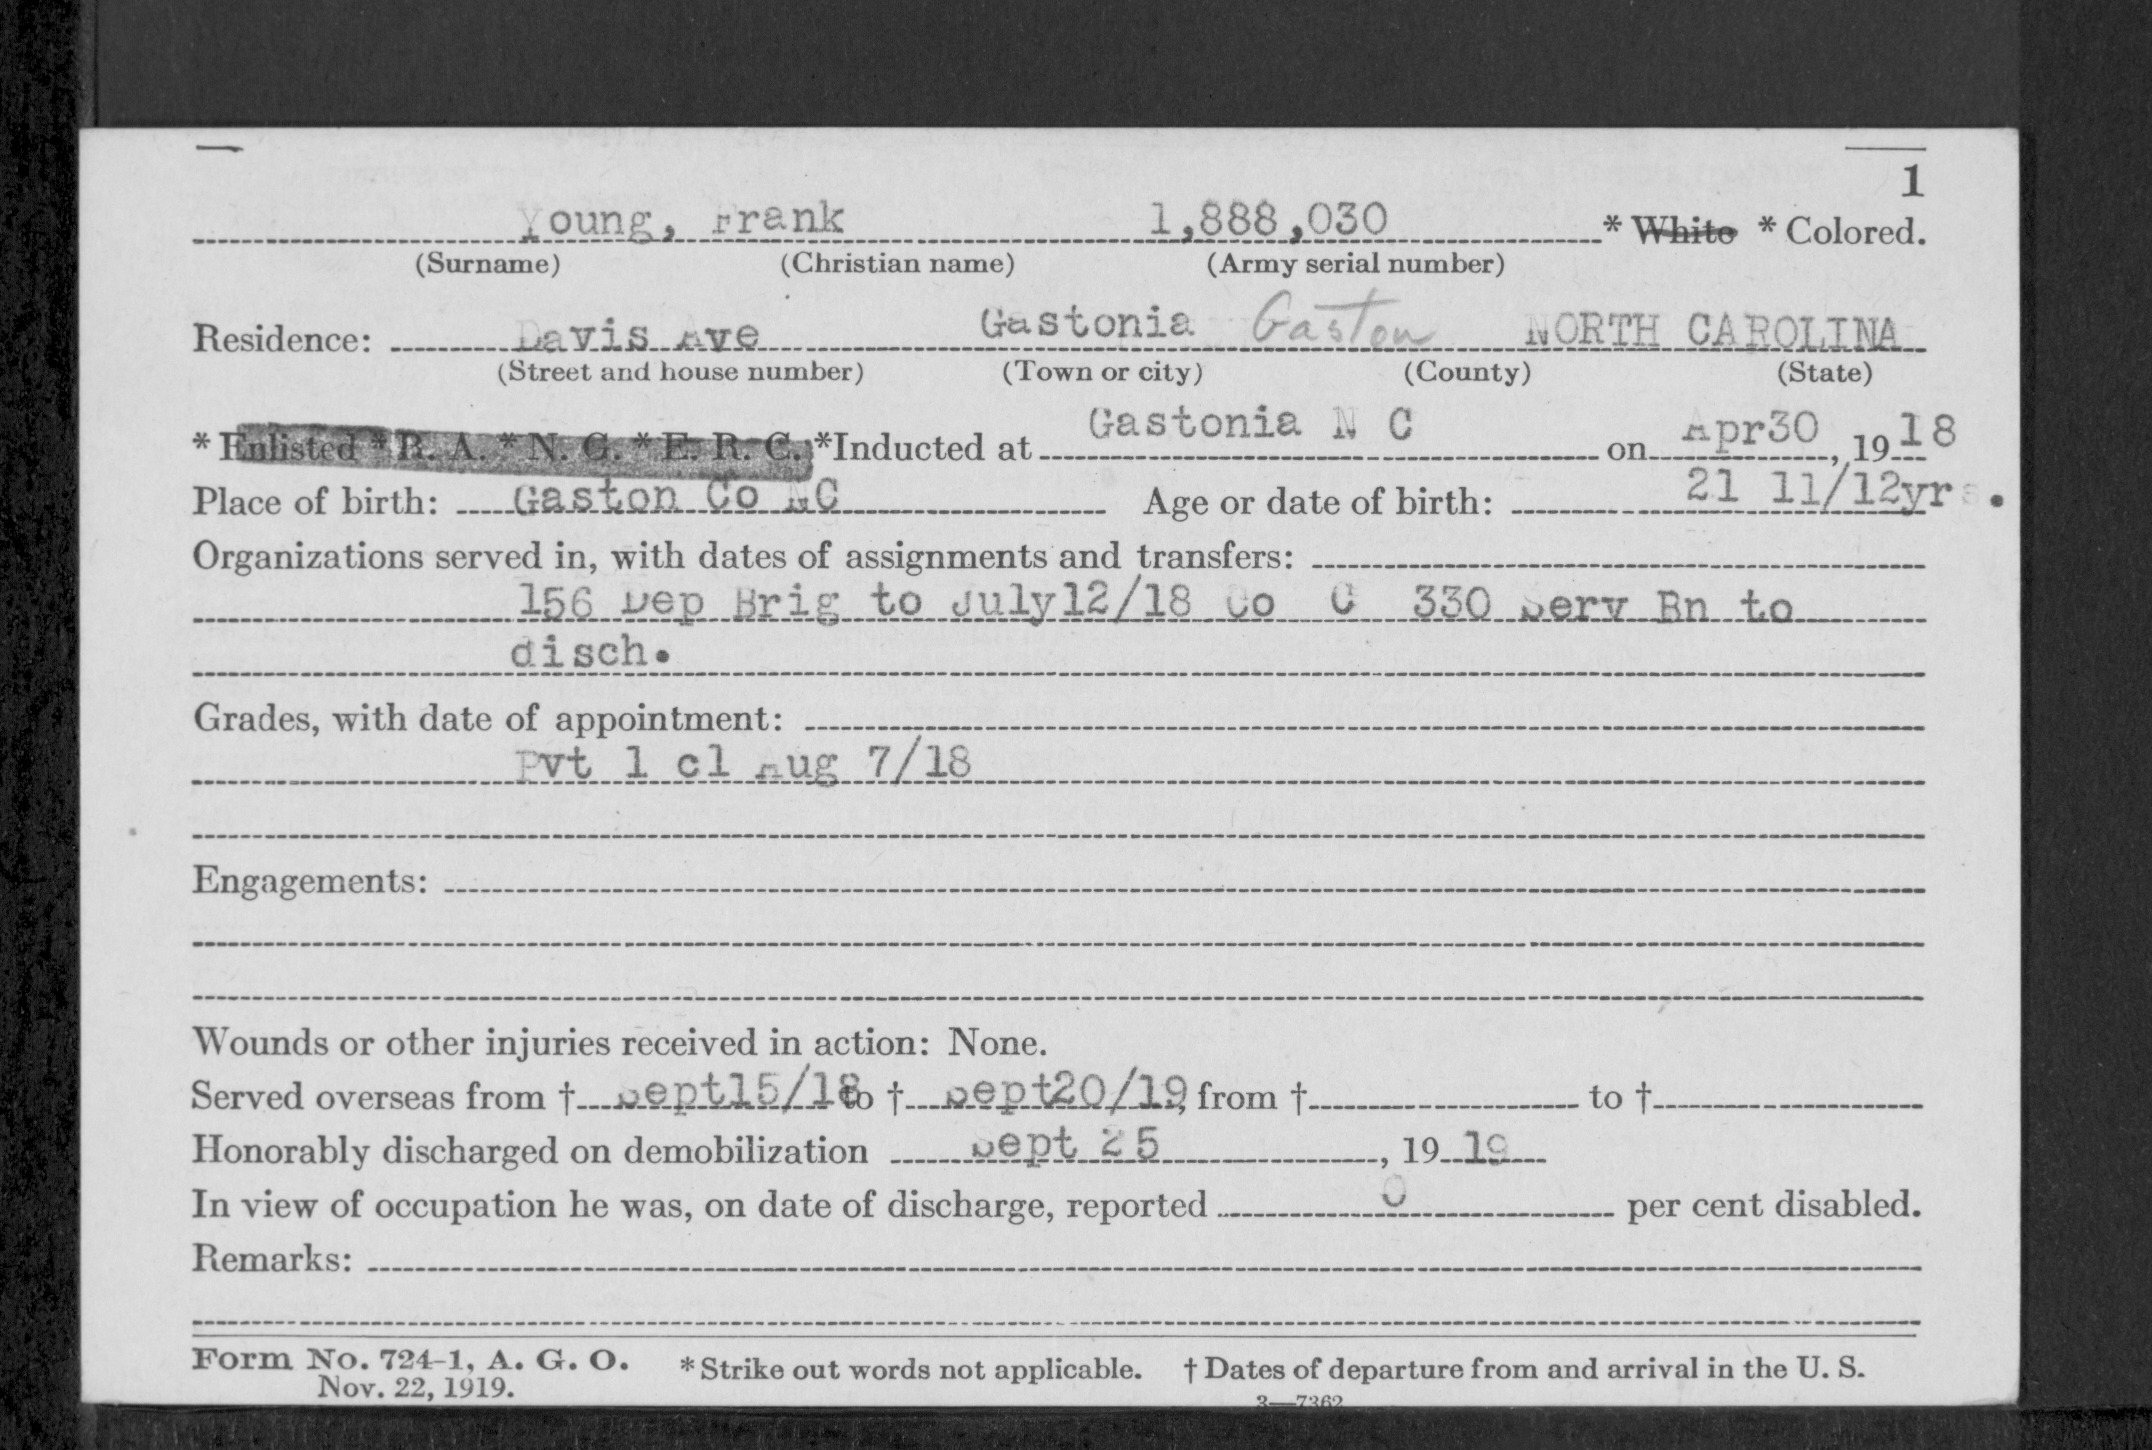 1
Young, Frank 1,888,030 * White * Colored.
(Surname) (Christian name) (Army serial number)
Residence: Davis Ave Gastonia Gaston NORTH CAROLINA
(Street and house number) (Town or city) (County) (State)
* Enlisted * R. A. * N. G. * E. R. C. *Inducted at Gastonia N C on Apr30, 1918
Place of birth: Gaston Co NC Age or date of birth: 21 11/12yrs.
Organizations served in, with dates of assignments and transfers:
156 Dep Brig to July12/18 Co C 330 Serv Bn to
disch.
Grades, with date of appointment:
Pvt 1 cl Aug 7/18
Engagements:
Wounds or other injuries received in action: None.
Served overseas from † Sept15/18 to † Sept20/19, from † to †
Honorably discharged on demobilization Sept 25, 1919
In view of occupation he was, on date of discharge, reported 0 per cent disabled.
Remarks:
Form No. 724-1, A. G. O. * Strike out words not applicable. † Dates of departure from and arrival in the U. S.
Nov. 22, 1919.
3—7362